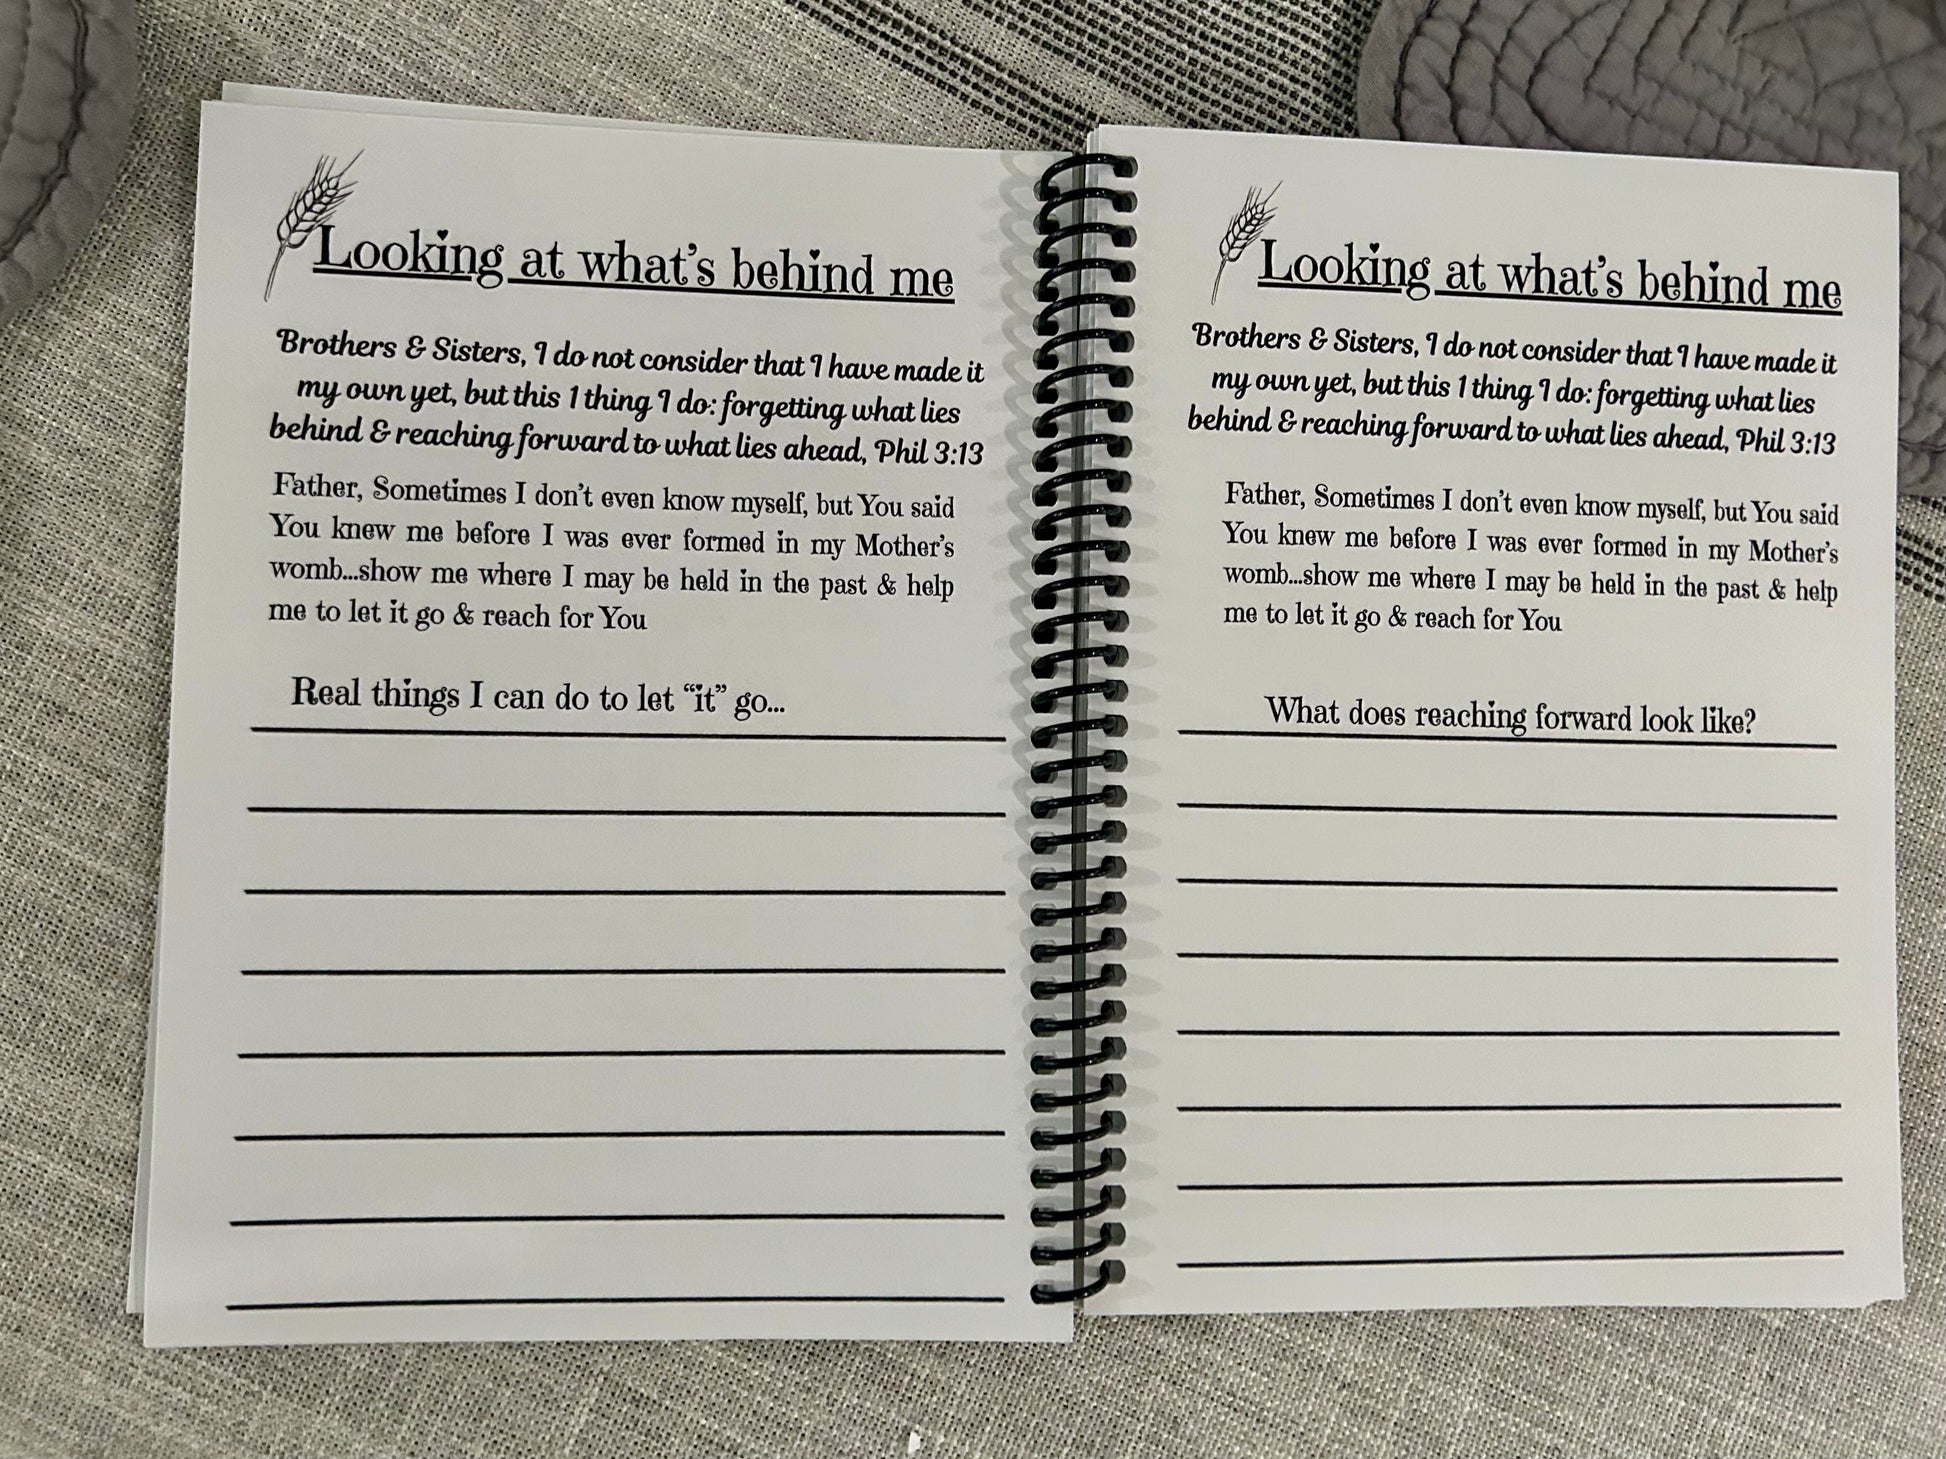 Looking at what's behind me
Brothers & Sisters, I do not consider that I have made it
my own yet, but this 1 thing I do: forgetting what lies
behind & reaching forward to what lies ahead, Phil 3:13
Father, Sometimes I don't even know myself, but You said
You knew me before I was ever formed in my Mother's
womb...show me where I may be held in the past & help
me to let it go & reach for You
Real things I can do to let “it” go...
Looking at what's behind me
Brothers & Sisters, I do not consider that I have made it
my own yet, but this 1 thing I do: forgetting what lies
behind & reaching forward to what lies ahead, Phil 3:13
Father, Sometimes I don't even know myself, but You said
You knew me before I was ever formed in my Mother's
womb...show me where I may be held in the past & help
me to let it go & reach for You
What does reaching forward look like?